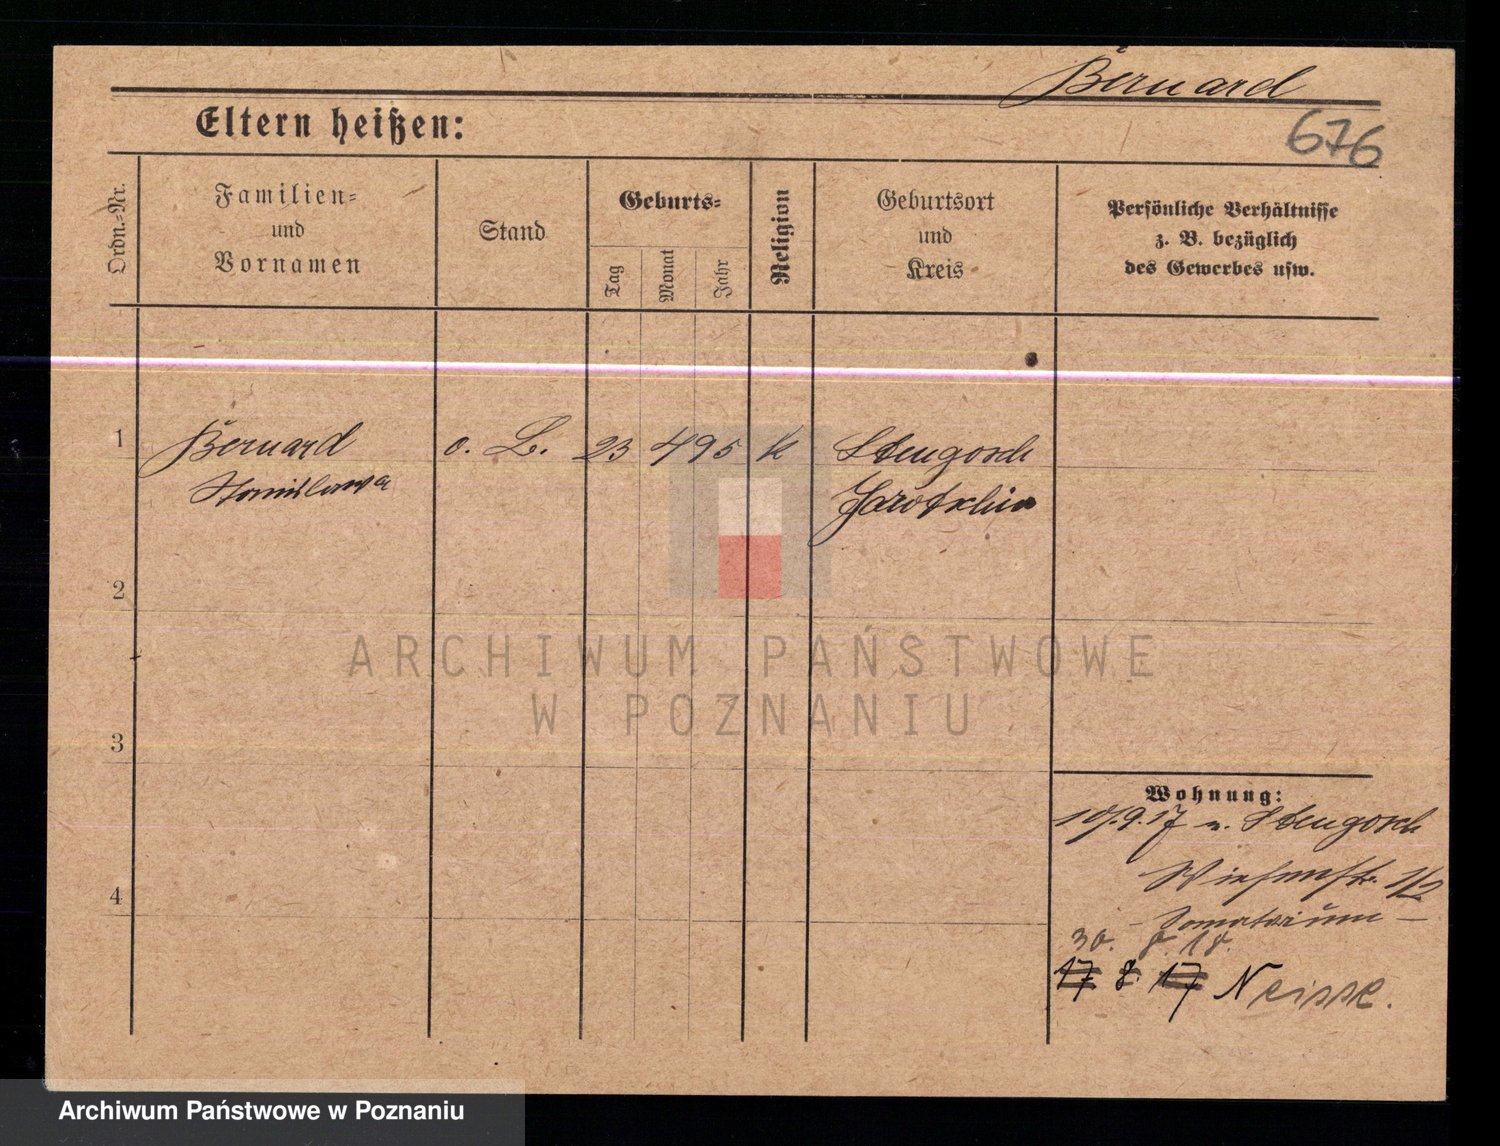 Bernard
Eltern heißen:
676
Ordn.-Nr.
Familien-
und
Vornamen
Stand
Geburts-
Tag
Monat
Jahr
Religion
Geburtsort
und
Kreis
Persönliche Verhältnisse
z. B. bezüglich
des Gewerbes usw.
1
Bernard o. B. 23 4 95 K Stengosch
Stanislawa Jarotschin
2
ARCHIWUM PAŃSTWOWE
W POZNANIU
3
Wohnung:
10/.9.17 n. Stengosch
Wiesenstr. 1/2
- Sanatorium -
30. 8. 18.
17 8. 17 Neisse.
4
Archiwum Państwowe w Poznaniu